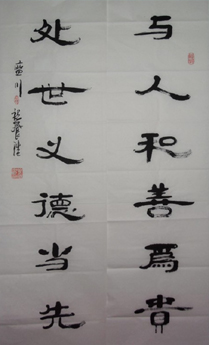 与人和善爲貴
处世义德当先